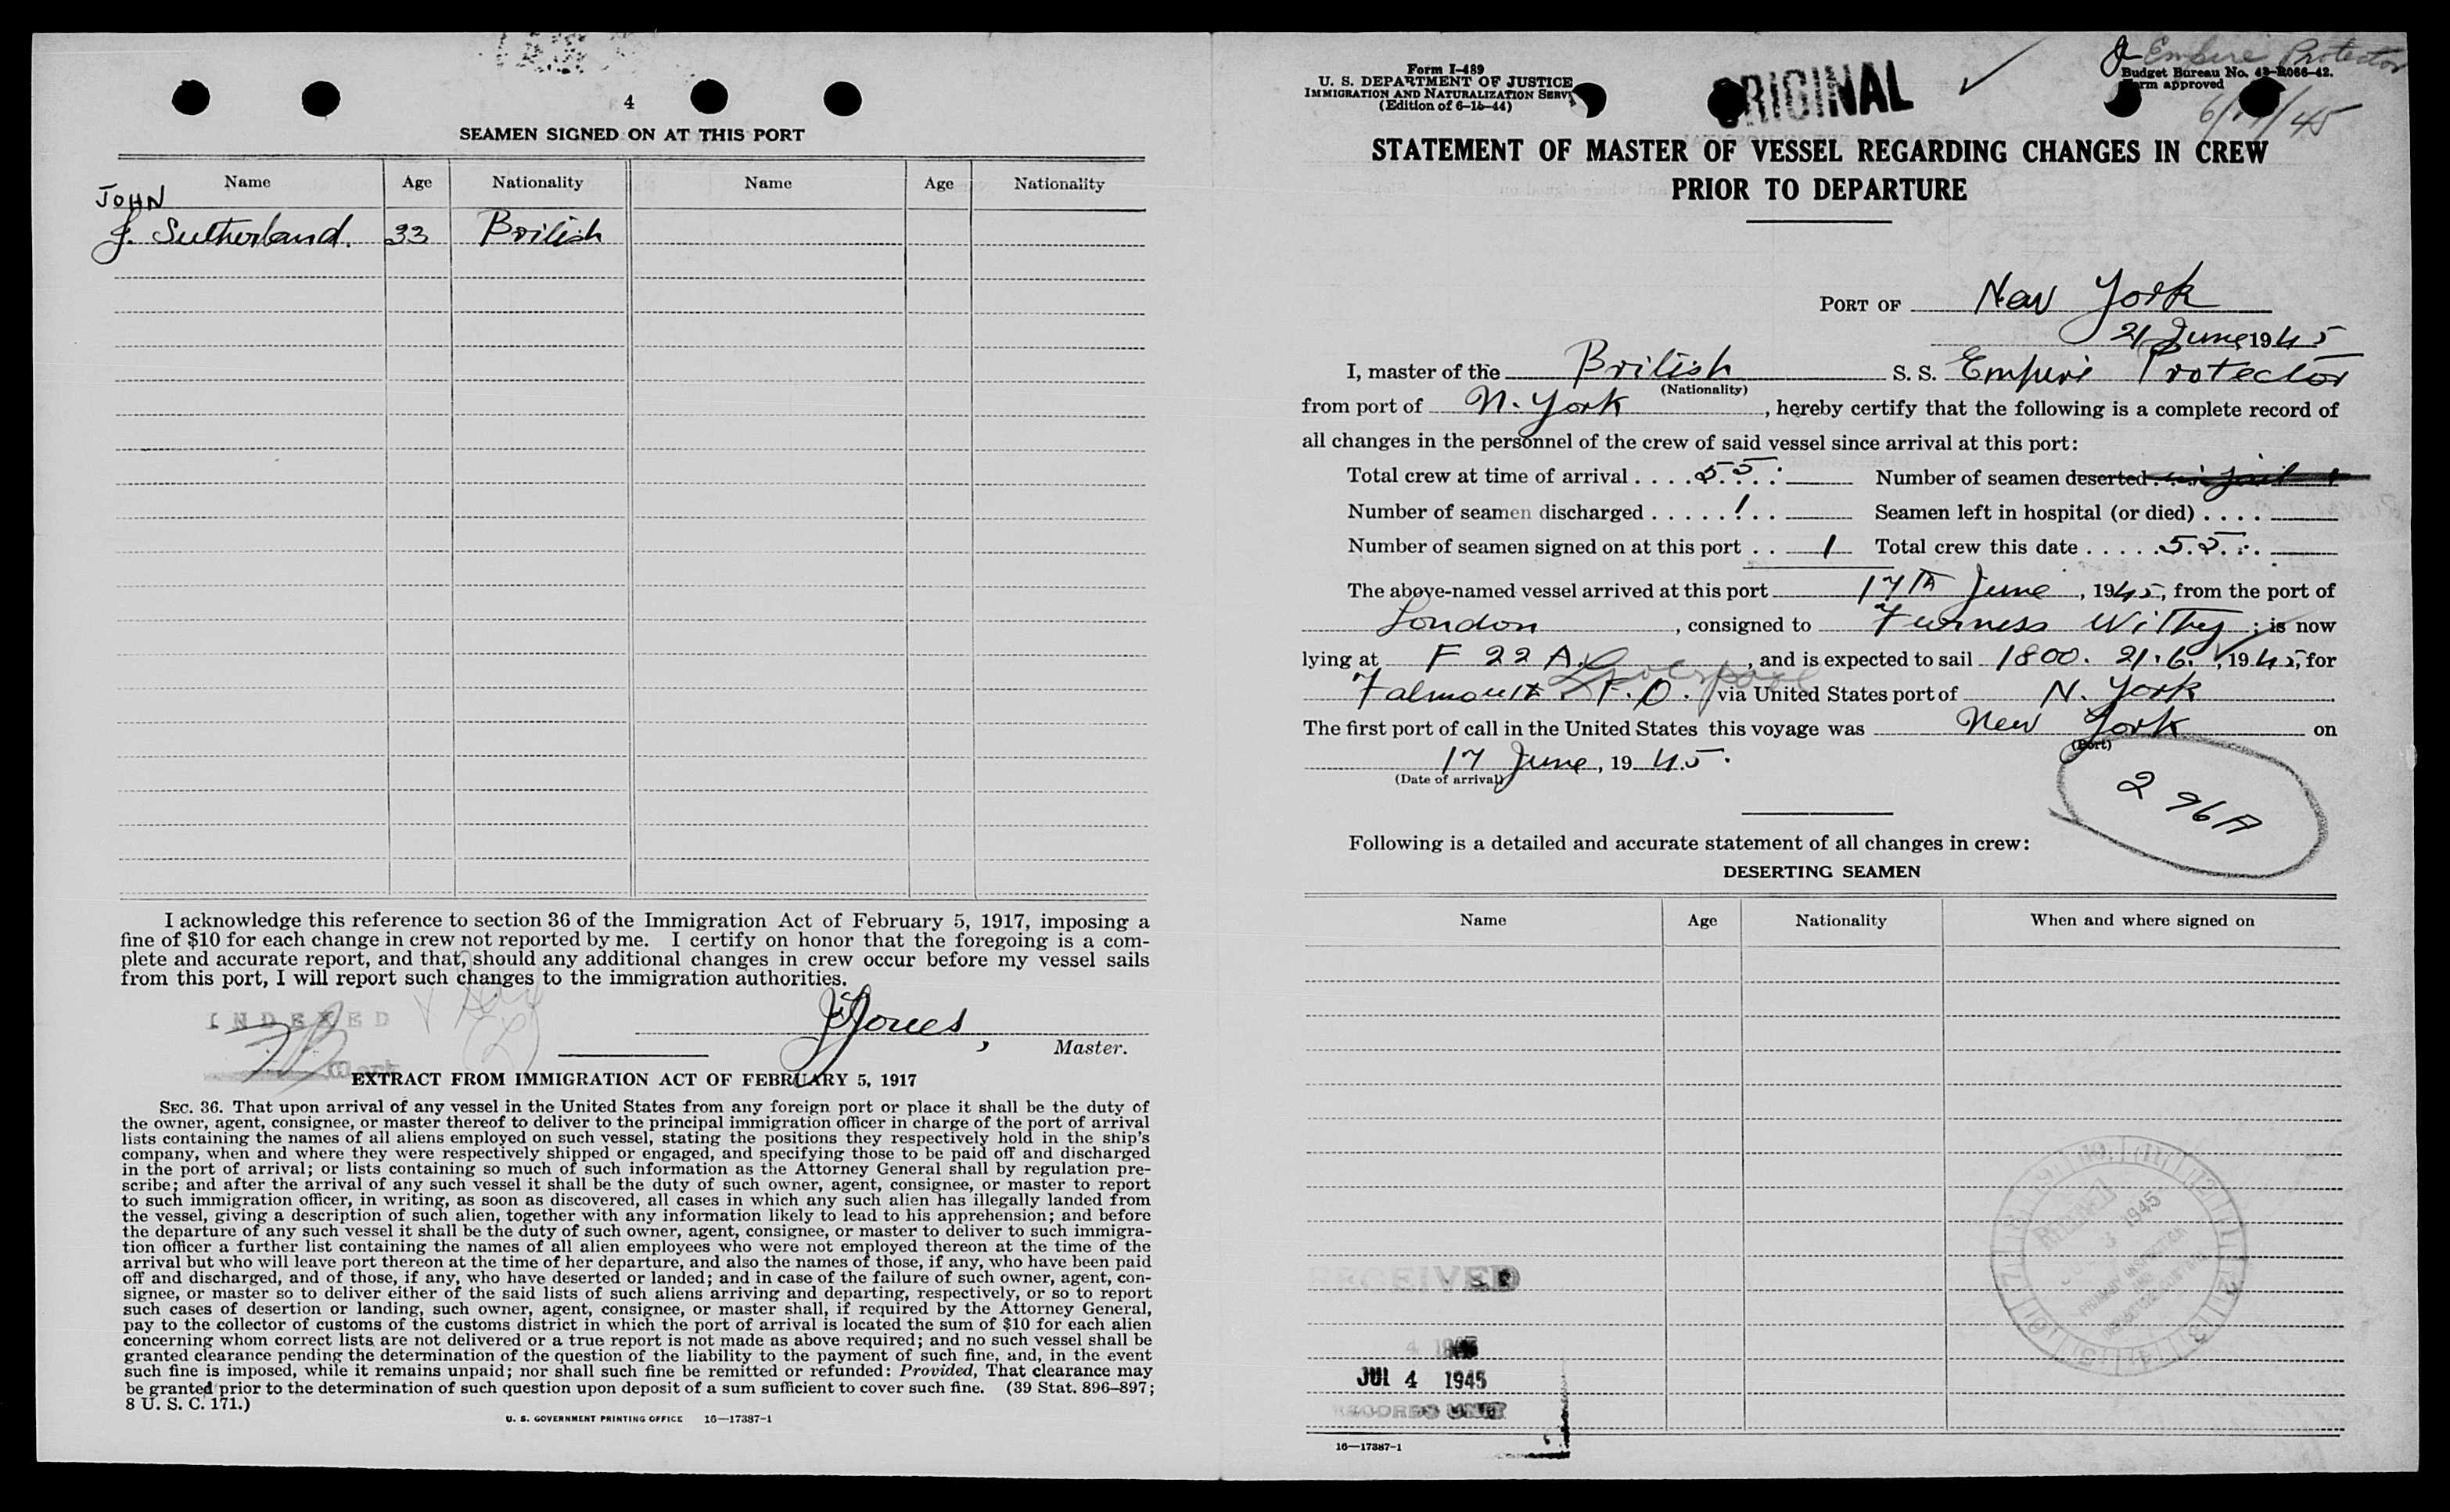 4
SEAMEN SIGNED ON AT THIS PORT
Name Age Nationality Name Age Nationality
JOHN
J. Sutherland. 33 British
I acknowledge this reference to section 36 of the Immigration Act of February 5, 1917, imposing a
fine of $10 for each change in crew not reported by me. I certify on honor that the foregoing is a com-
plete and accurate report, and that, should any additional changes in crew occur before my vessel sails
from this port, I will report such changes to the immigration authorities.
INDEXED
Jones,
Master.
EXTRACT FROM IMMIGRATION ACT OF FEBRUARY 5, 1917
SEC. 36. That upon arrival of any vessel in the United States from any foreign port or place it shall be the duty of
the owner, agent, consignee, or master thereof to deliver to the principal immigration officer in charge of the port of arrival
lists containing the names of all aliens employed on such vessel, stating the positions they respectively hold in the ship's
company, when and where they were respectively shipped or engaged, and specifying those to be paid off and discharged
in the port of arrival; or lists containing so much of such information as the Attorney General shall by regulation pre-
scribe; and after the arrival of any such vessel it shall be the duty of such owner, agent, consignee, or master to report
to such immigration officer, in writing, as soon as discovered, all cases in which any such alien has illegally landed from
the vessel, giving a description of such alien, together with any information likely to lead to his apprehension; and before
the departure of any such vessel it shall be the duty of such owner, agent, consignee, or master to deliver to such immigra-
tion officer a further list containing the names of all alien employees who were not employed thereon at the time of the
arrival but who will leave port thereon at the time of her departure, and also the names of those, if any, who have been paid
off and discharged, and of those, if any, who have deserted or landed; and in case of the failure of such owner, agent, con-
signee, or master so to deliver either of the said lists of such aliens arriving and departing, respectively, or so to report
such cases of desertion or landing, such owner, agent, consignee, or master shall, if required by the Attorney General,
pay to the collector of customs of the customs district in which the port of arrival is located the sum of $10 for each alien
concerning whom correct lists are not delivered or a true report is not made as above required; and no such vessel shall be
granted clearance pending the determination of the question of the liability to the payment of such fine, and, in the event
such fine is imposed, while it remains unpaid; nor shall such fine be remitted or refunded: Provided, That clearance may
be granted prior to the determination of such question upon deposit of a sum sufficient to cover such fine. (39 Stat. 896–897;
8 U. S. C. 171.)
U. S. GOVERNMENT PRINTING OFFICE 16—17387-1
Empire Protector
Form I-489
U. S. DEPARTMENT OF JUSTICE
IMMIGRATION AND NATURALIZATION SERV
(Edition of 6-15-44)
ORIGINAL
Budget Bureau No. 43-R066-42.
rm approved
STATEMENT OF MASTER OF VESSEL REGARDING CHANGES IN CREW
PRIOR TO DEPARTURE
PORT OF New York
21 June 1945
I, master of the British S. S. Empire Protector
(Nationality)
from port of N. York, hereby certify that the following is a complete record of
all changes in the personnel of the crew of said vessel since arrival at this port:
Total crew at time of arrival .... 55. Number of seamen deserted
Number of seamen discharged ..... 1 Seamen left in hospital (or died) ....
Number of seamen signed on at this port .. 1 Total crew this date ..... 55
The above-named vessel arrived at this port 17TH June, 1945, from the port of
London, consigned to Furness Withy; is now
lying at F 22 A., and is expected to sail 1800. 21.6., 1945, for
Falmouth F.O. Liverpool via United States port of N. York
The first port of call in the United States this voyage was New York on
(Port)
17 June, 1945.
(Date of arrival)
296A
Following is a detailed and accurate statement of all changes in crew:
DESERTING SEAMEN
Name Age Nationality When and where signed on
RECEIVED
1945
RECEIVED
4 1945
JUL 4 1945
RECORDS UNIT
16—17387-1